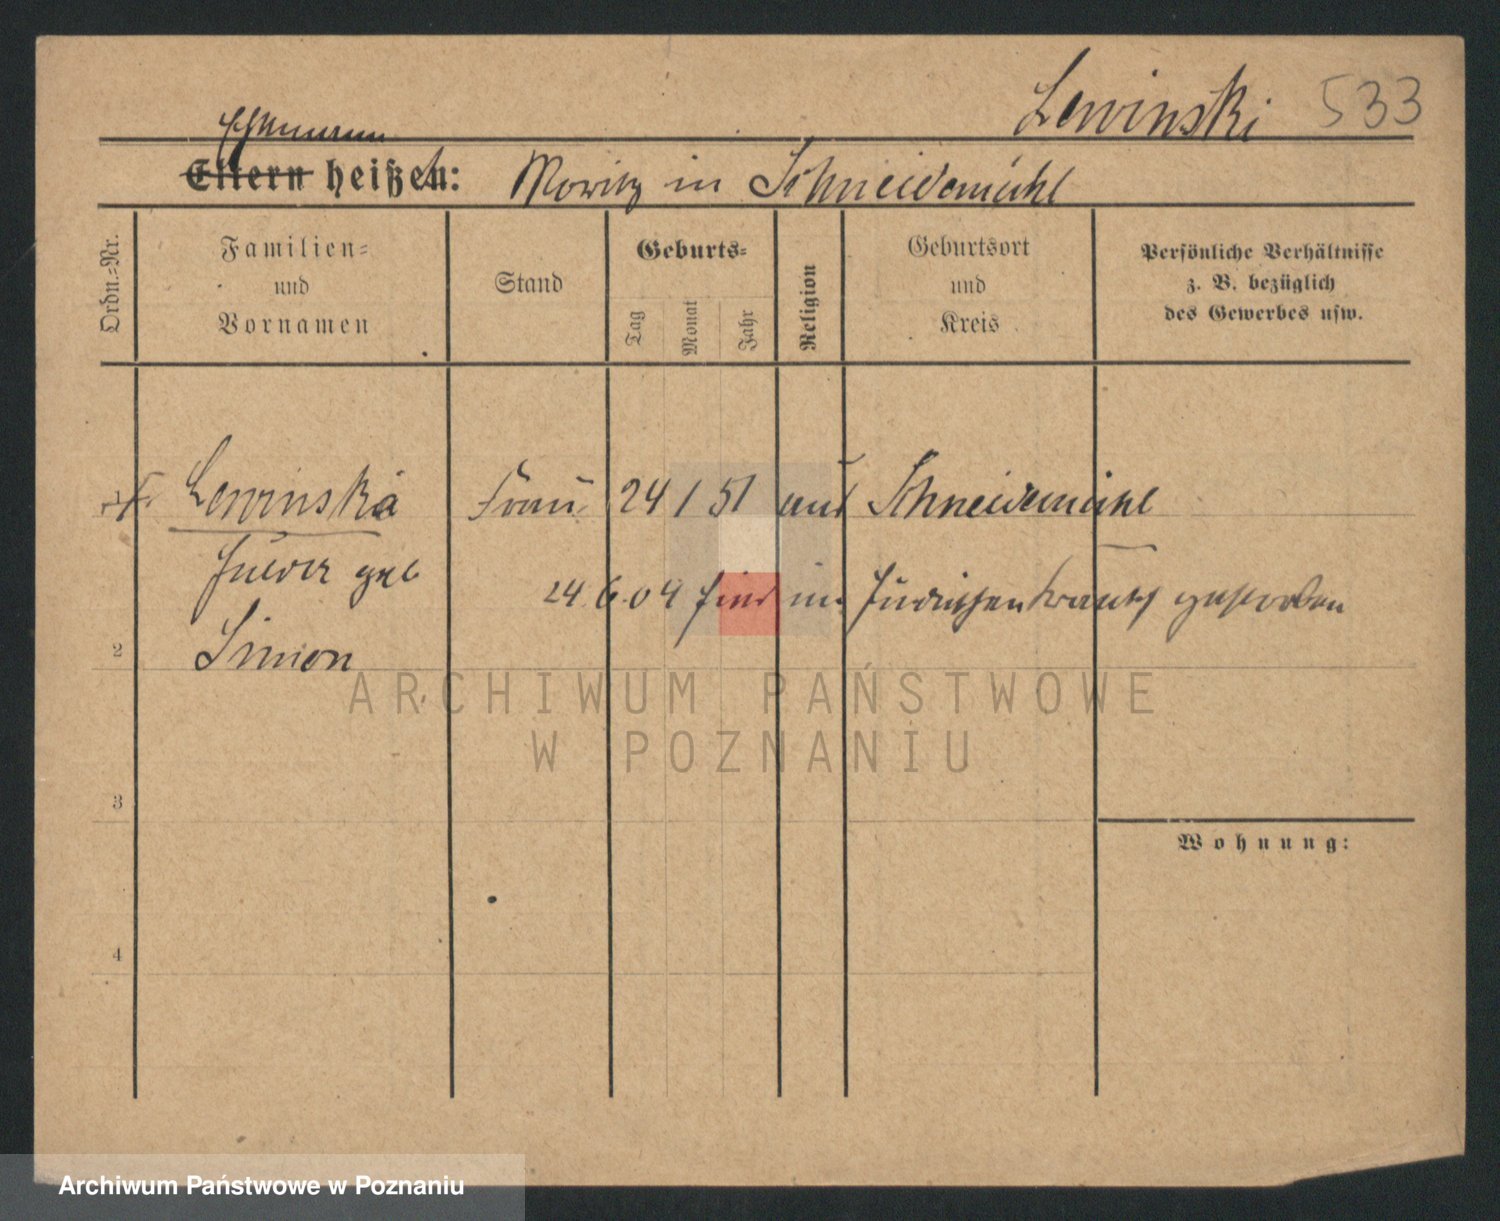 Lewinski 533
Ehemann
Eltern heißen: Moritz in Schneidemühl
Ordn.-Nr.
Familien-
und
Vornamen
Stand
Geburts-
Tag
Monat
Jahr
Religion
Geburtsort
und
Kreis
Persönliche Verhältnisse
z. B. bezüglich
des Gewerbes usw.
Lewinska Frau 24 / 51 Schneidemühl
geb
24.6.04 hier im jüdischen gestorben
2 Simon
ARCHIWUM PAŃSTWOWE
W POZNANIU
3
Wohnung:
4
Archiwum Państwowe w Poznaniu